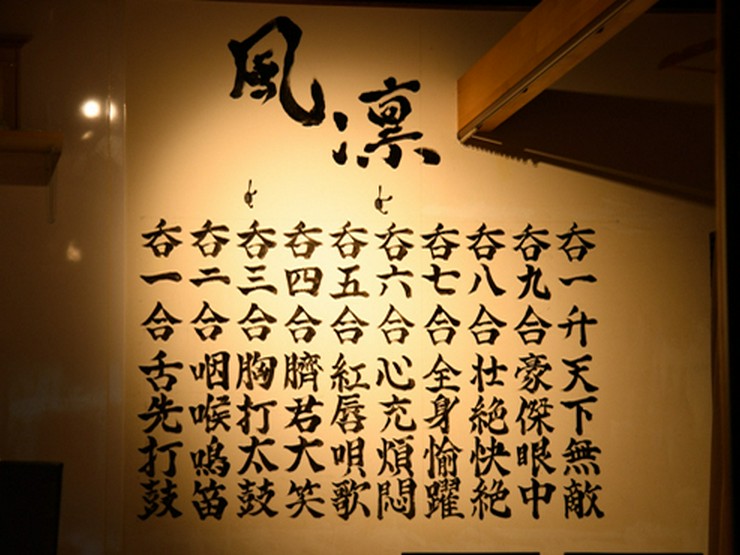 風凛
呑一合舌先打鼓
呑二合咽喉鳴笛
呑三合胸打太鼓
呑四合臍君大笑
呑五合紅唇唄歌
呑六合心充煩悶
呑七合全身愉躍
呑八合壮絶快絶
呑九合豪傑眼中
呑一升天下無敵